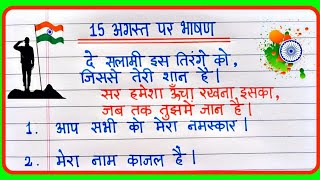 15 अगस्त पर भाषण
दे सलामी इस तिरंगे को,
जिससे तेरी शान है।
सर हमेशा ऊँचा रखना इसका,
जब तक तुझमें जान है।
1. आप सभी को मेरा नमस्कार।
2. मेरा नाम काजल है।